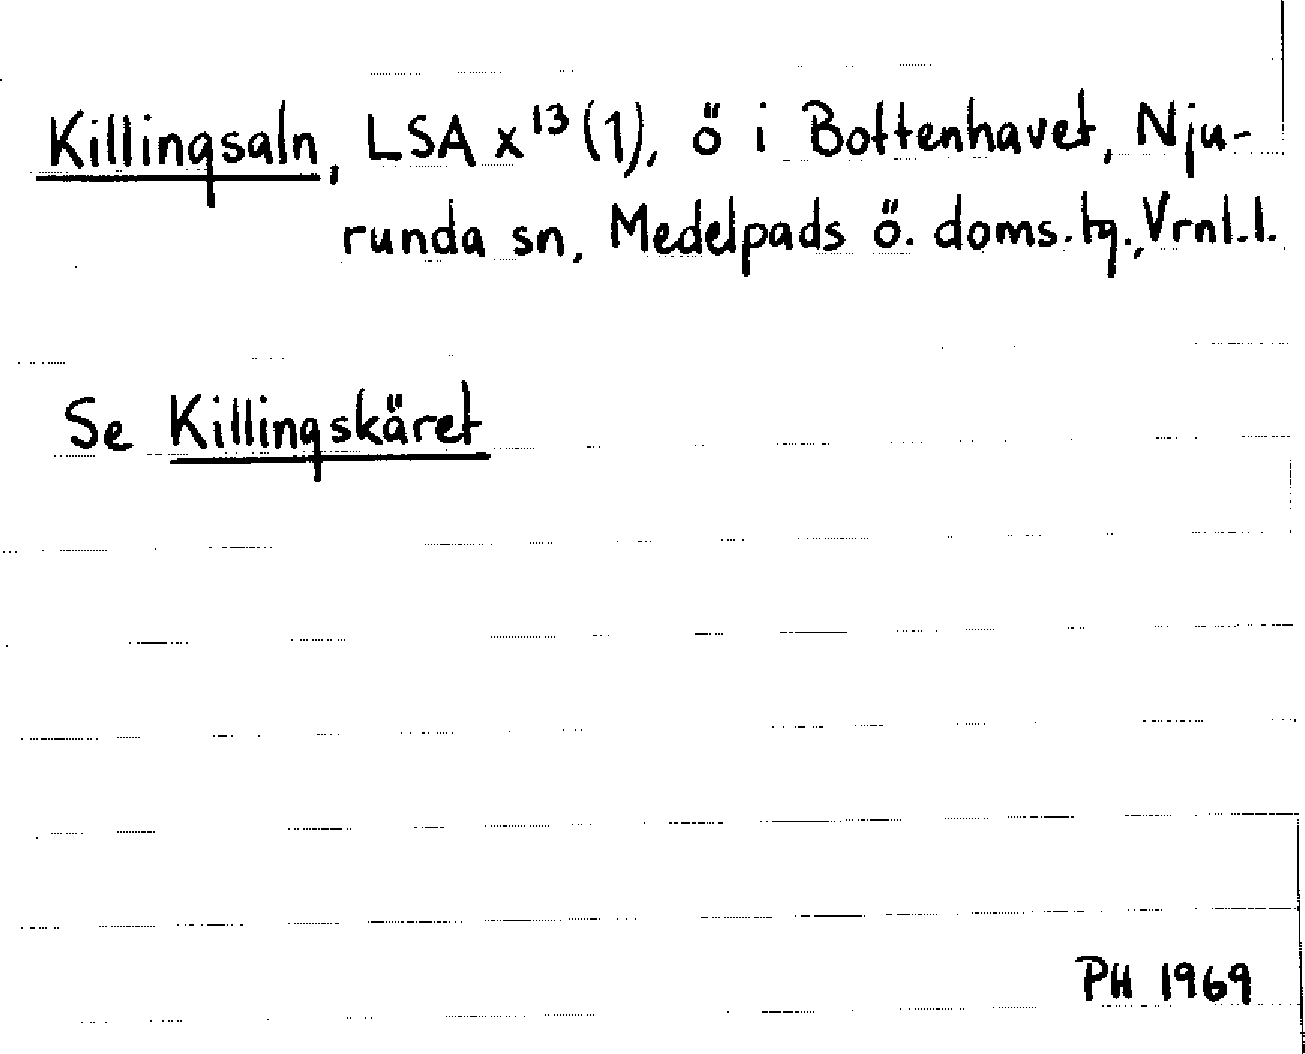 Killingsaln, LSA x¹³(1), ö i Bottenhavet, Nju-
runda sn, Medelpads ö. doms.tg., Vrnl.l.
Se Killingskäret
PH 1969